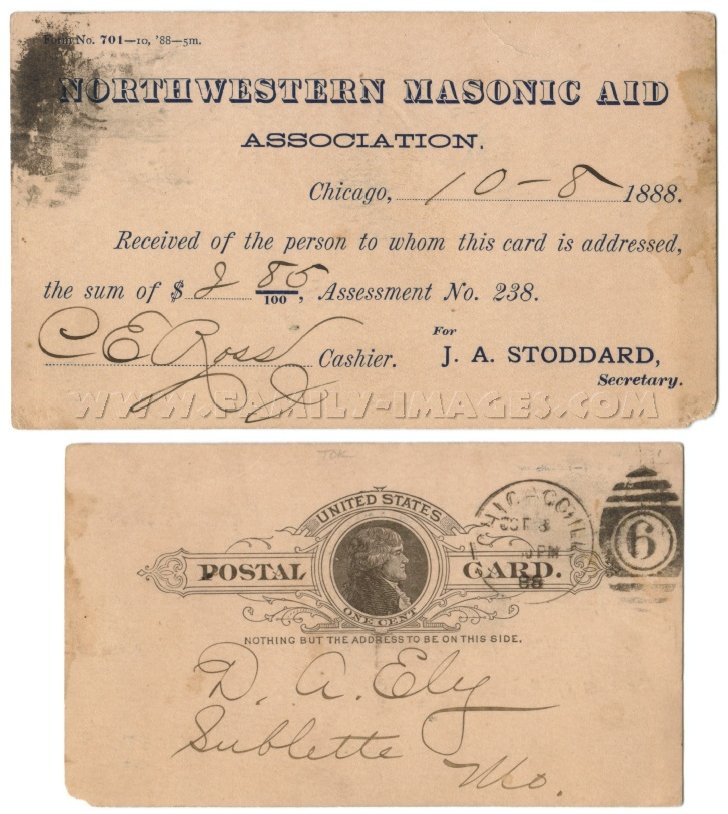 Form No. 701—10, '88—5m.
NORTHWESTERN MASONIC AID
ASSOCIATION.
Chicago, 10-8 1888.
Received of the person to whom this card is addressed,
the sum of $ 2 85/100, Assessment No. 238.
For
C E Ross Cashier. J. A. STODDARD,
Secretary.
WWW.FAMILY-IMAGES.COM
TDK
UNITED STATES
POSTAL CARD.
ONE CENT
CHICAGO, ILL.
OCT 8
PM
88
6
NOTHING BUT THE ADDRESS TO BE ON THIS SIDE.
D. A. Ely
Sublette
Mo.